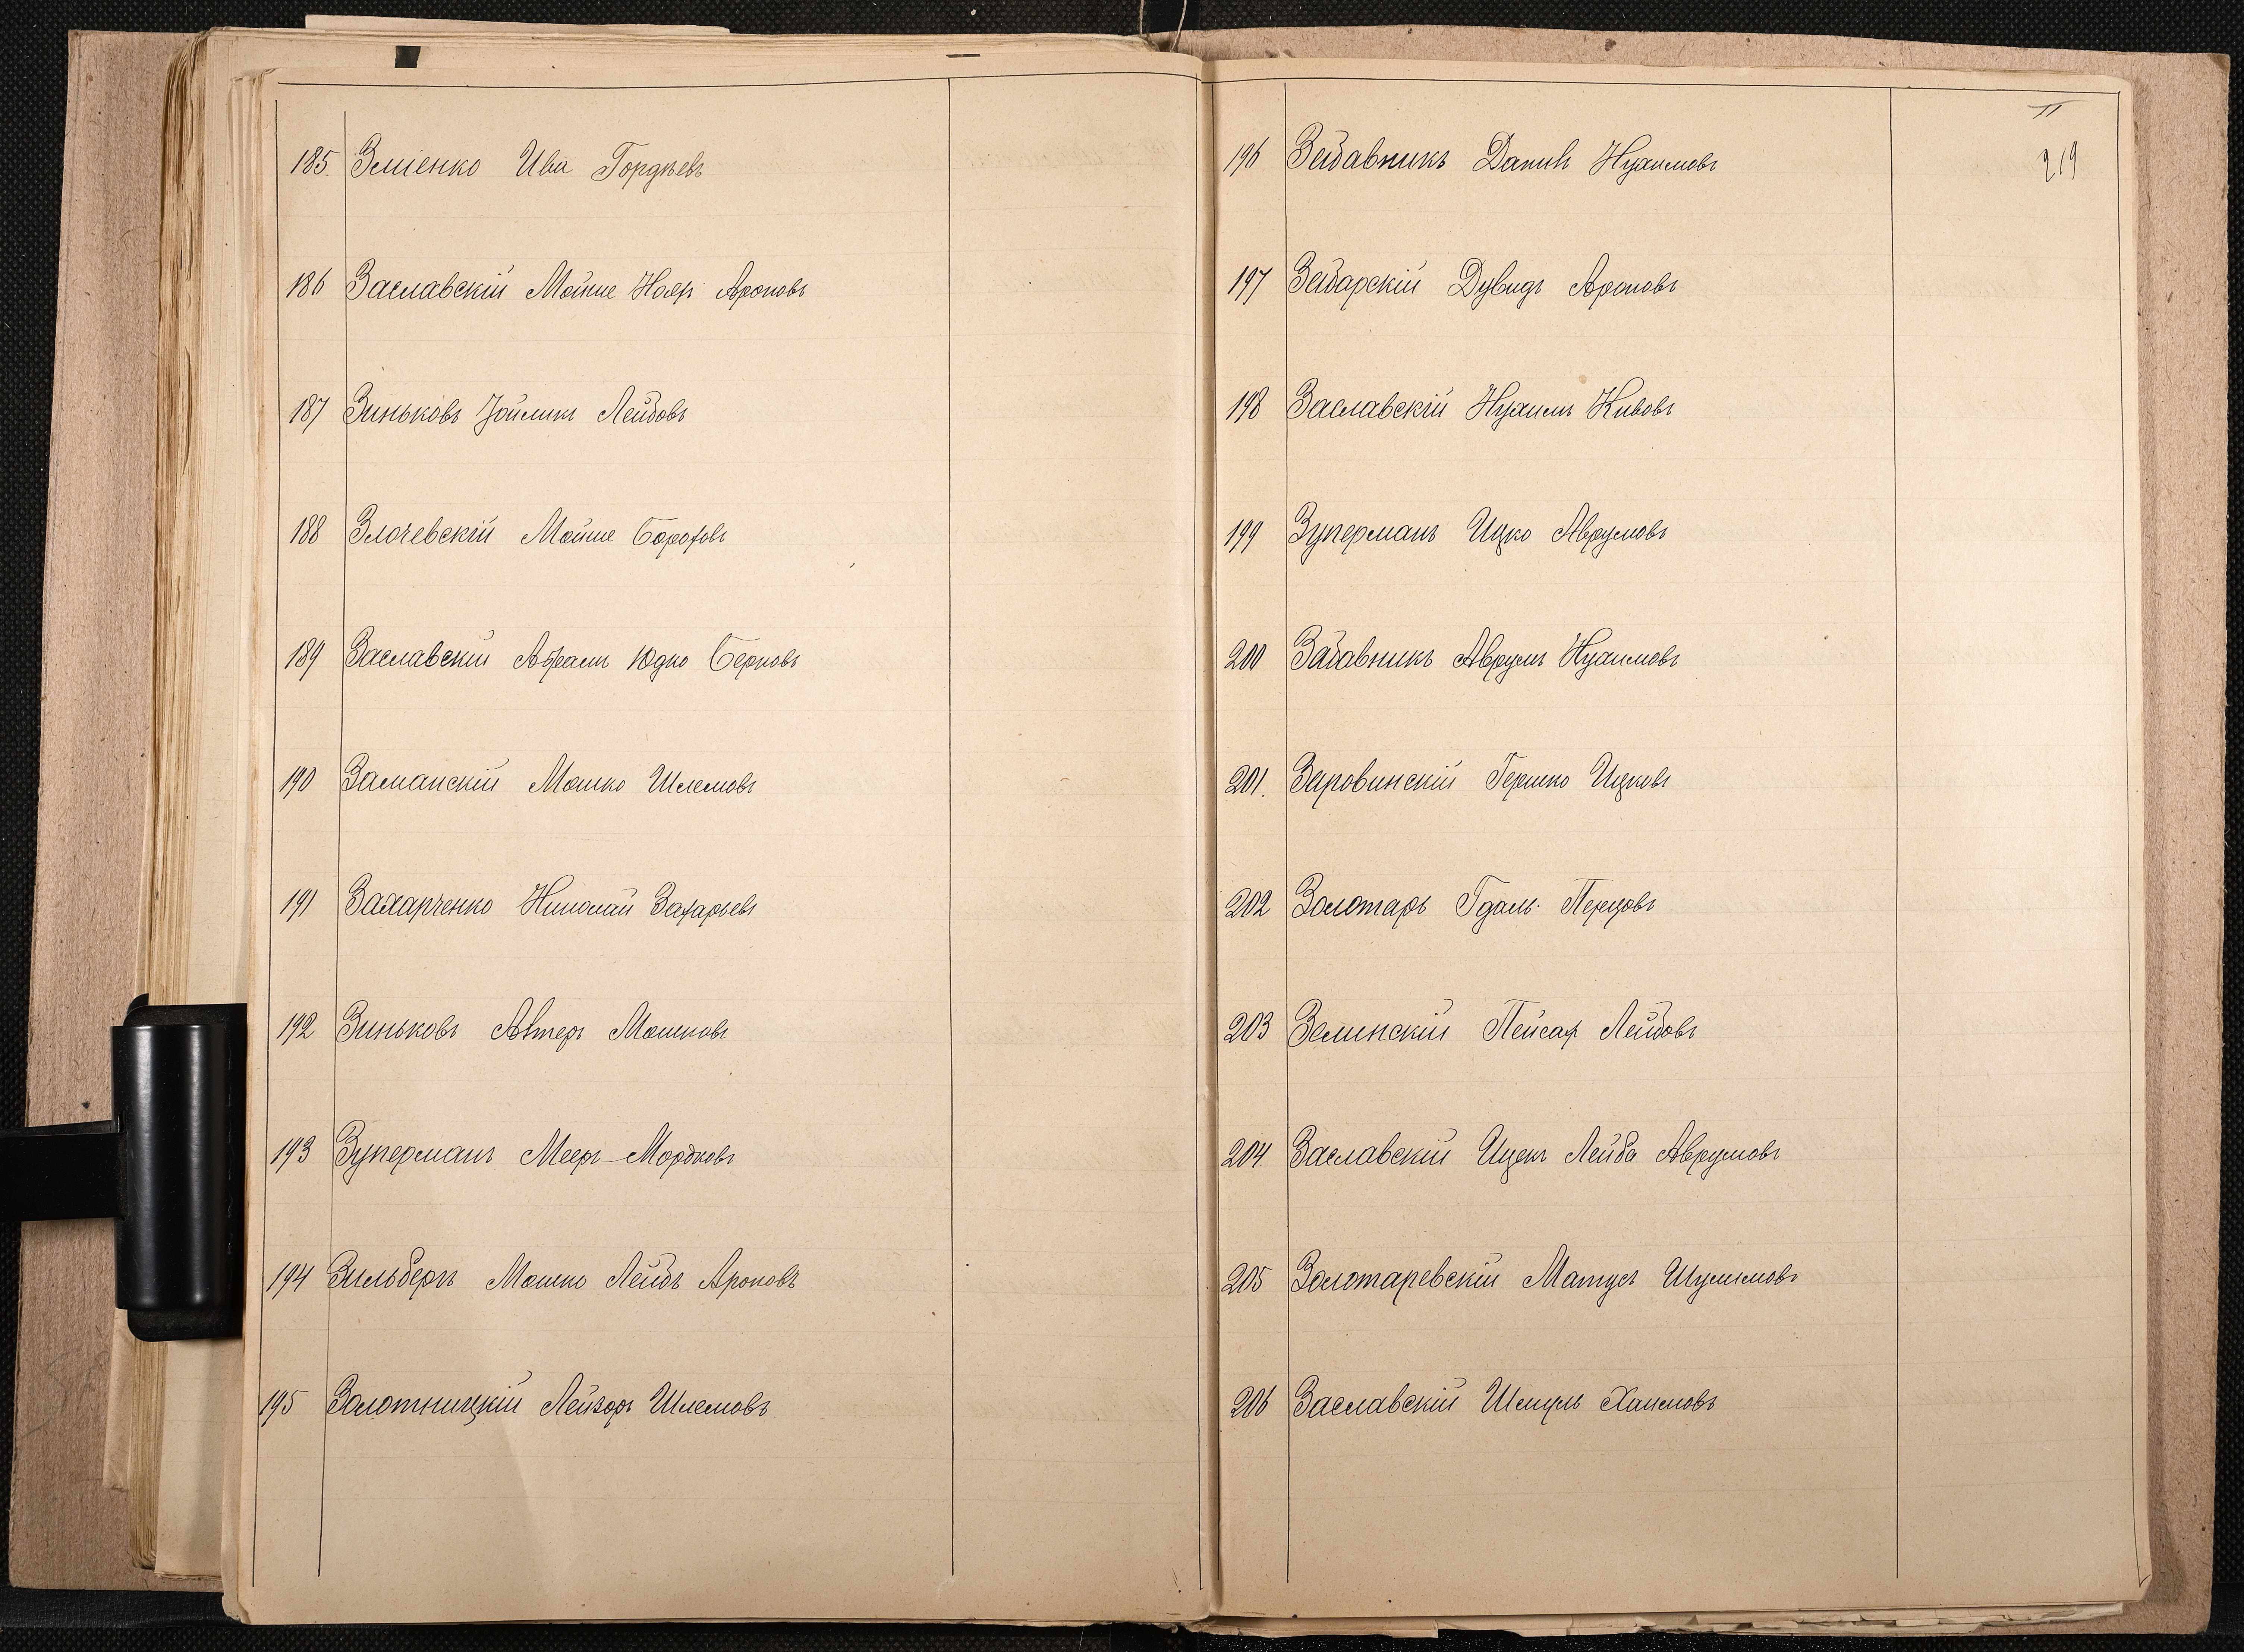 185. Зміенко Ива Гордѣевъ
186 Заславскій Мойше Ноях Ароновъ
187 Зиньковъ Зойликъ Лейбовъ
188 Злочевскій Мойше Бороховъ
189 Заславскій Абрамъ Юдко Берковъ
190 Заманскій Мошко Шлемовъ
191 Захарченко Николай Захарьевъ
192 Зиньковъ Алтеръ Мошковъ
193 Зуперманъ Мееръ-Мордковъ
194 Зильберъ Мошко Лейбъ Ароновъ
195 Золотницкій Лейзоръ Шлемовъ
II
219
196 Забавникъ Данилъ Нухимовъ
197 Збарскій Дувидъ Ароновъ
198 Заславскій Нухимъ Кивовъ
199 Зуперманъ Ицко Аврумовъ
200 Забавникъ Аврумъ Нухимовъ
201. Заровинскій Гершко Ицковъ
202 Золотарь Гдаль Перцовъ
203 Зелинскій Пейсах Лейбовъ
204. Заславскій Ицекъ Лейба Аврумовъ
205 Золотаревскій Матусъ Шулимовъ
206 Заславскій Шмуль Хаимовъ